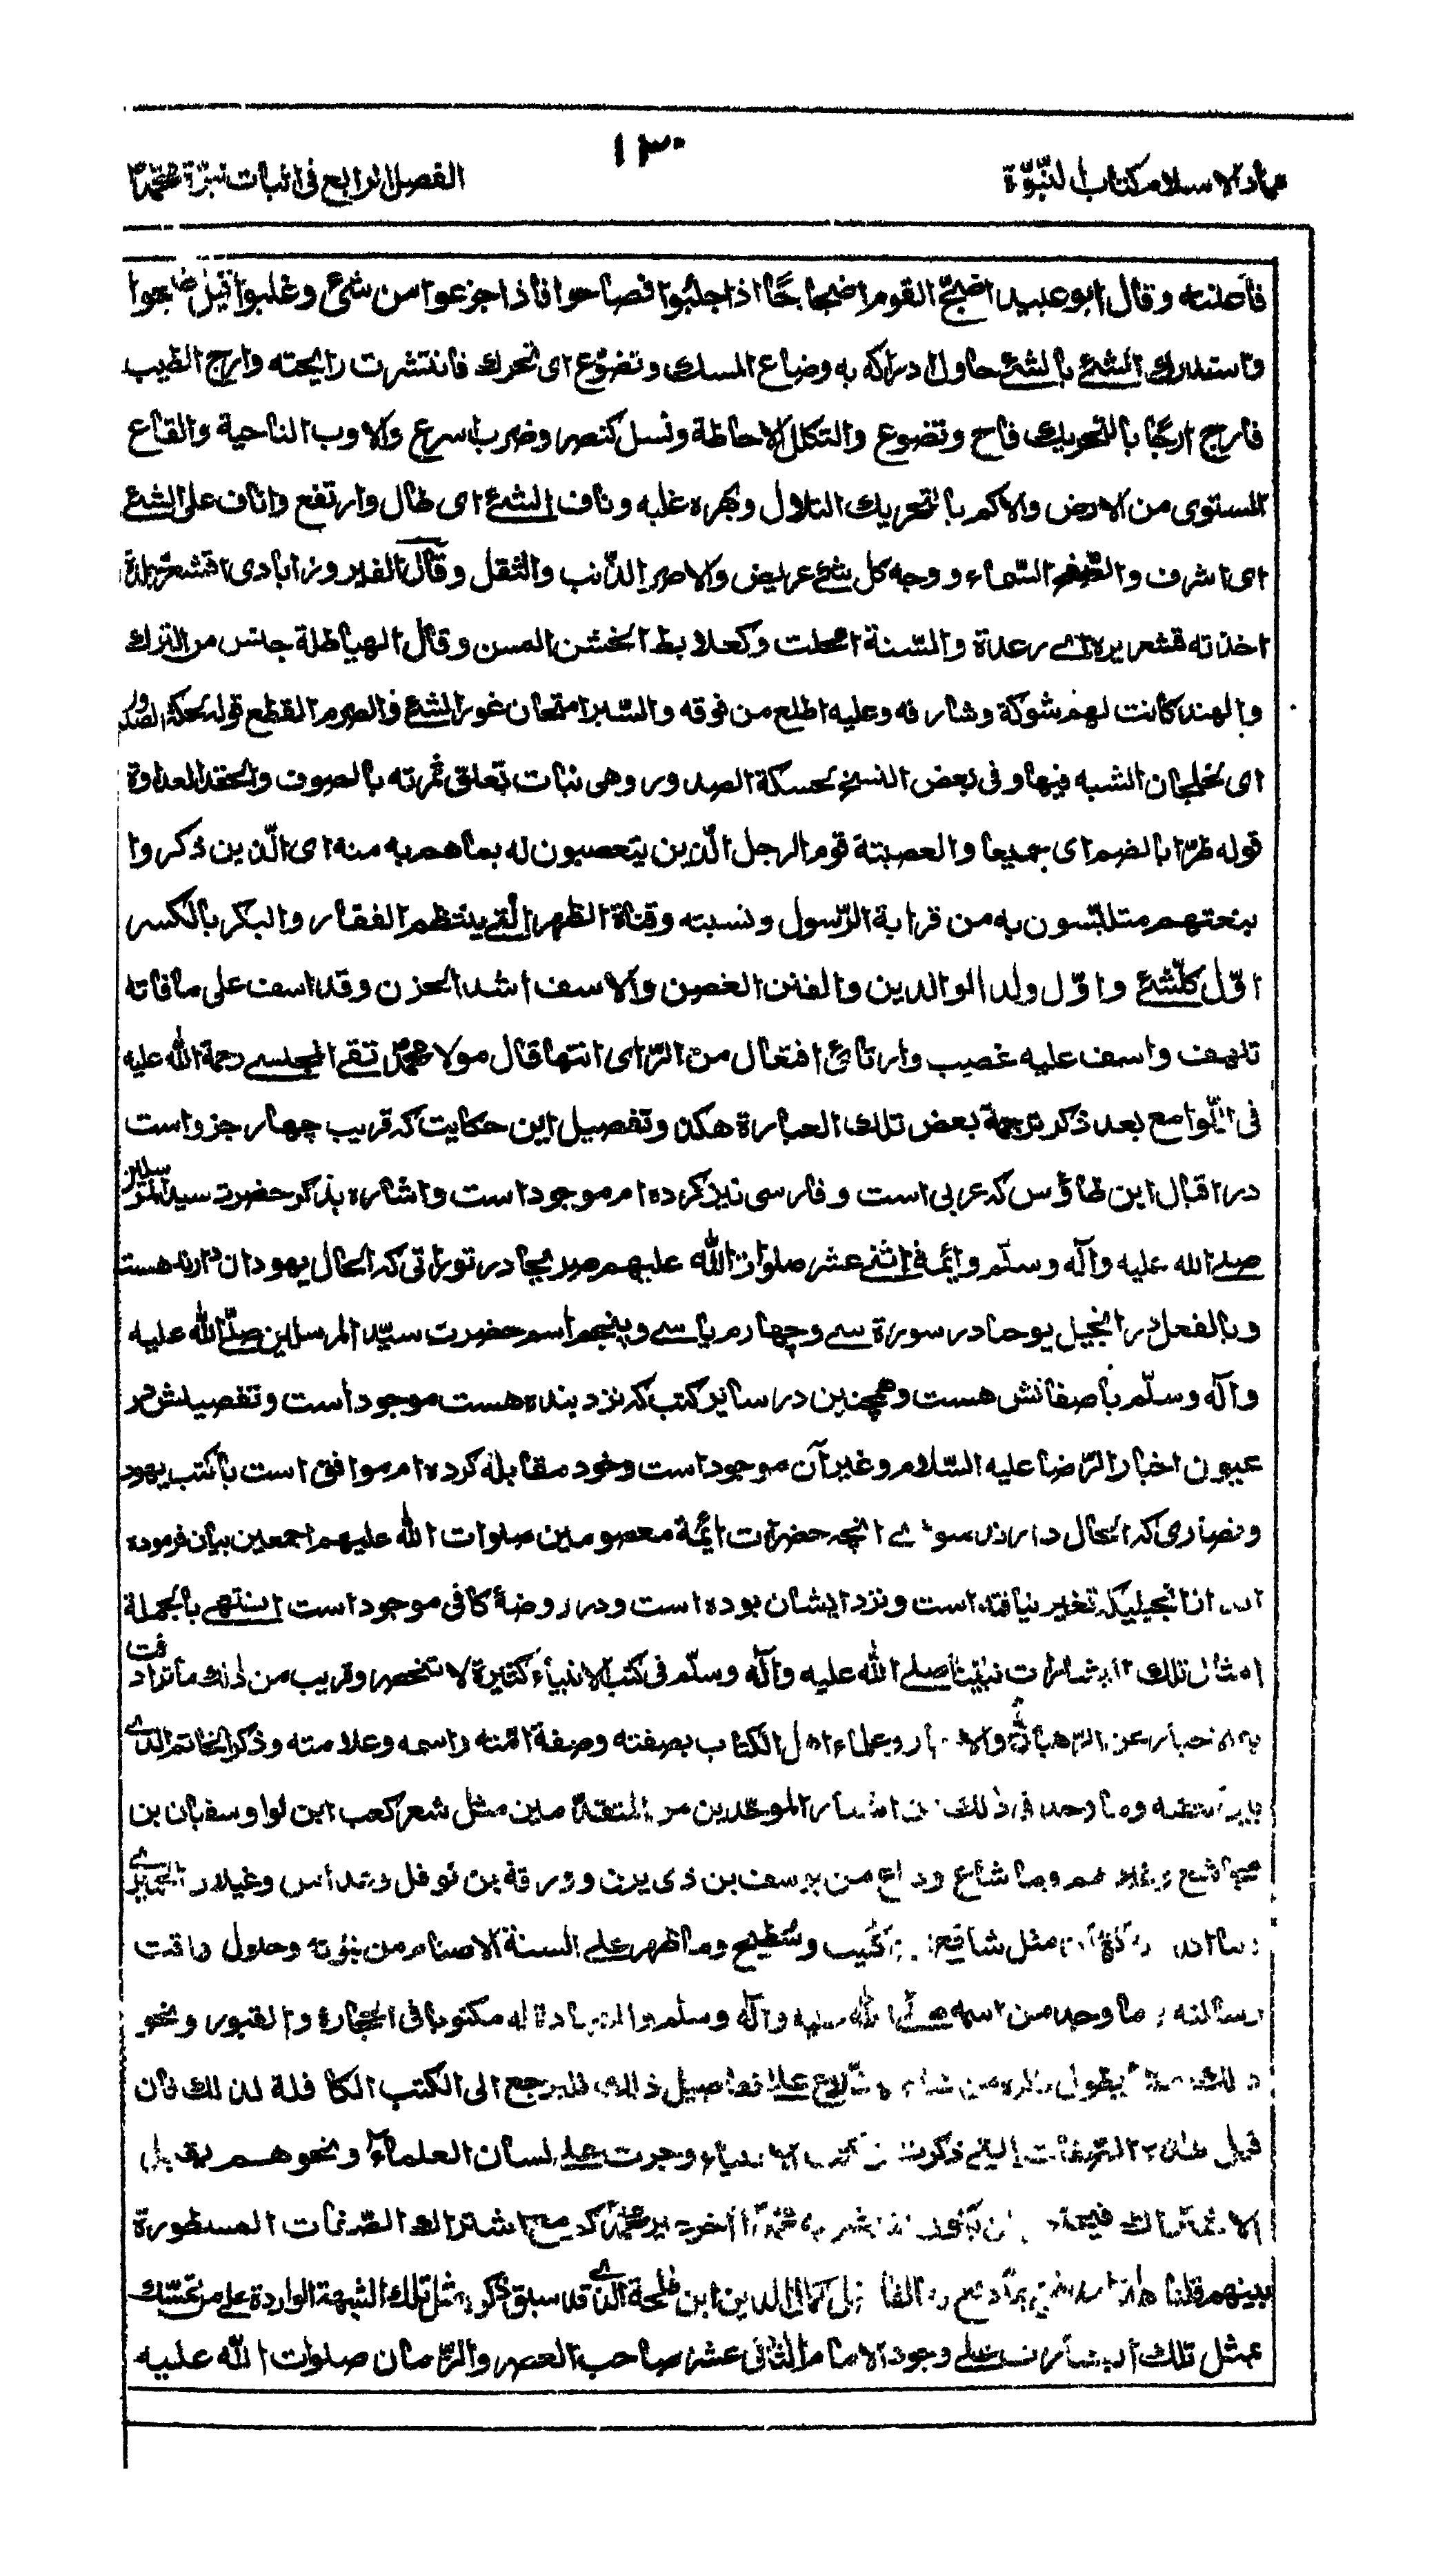 عماد الاسلام كتاب النبّوّة
١٣٠
الفصل الرابع فى اثبات نبوّة محمّد
وقال ابو عبيد اضجّ القوم اضجاجًا اذا جلبوا فصاحوا فاذا جزعوا من شئ وغلبوا قيل ضجوا
واستدرك الشئ بالشئ حاول ادراكه به وضاع المسك وتضوّع اى تحرك فانتشرت رايحته وارج الطيب
فارج ارجًا بالتحريك فاح وتضوع والتكلل الاحاطة ونسل كنصر وضرب اسرع والاوب الناحية والقاع
المستوى من الارض والاكم بالتحريك التلال وبهره غلبه وناف الشئ اى طال وارتفع واناف على الشئ
اى اشرف و السّماء ووجه كل شئ عريض والاصر الذّنب والثقل وقال الفيروزابادى اقشعر جلدة
اخذته قشعريرة اى رعدة والسّنة امحلت وكعلابط الخشن المسن وقال الهياطلة جنس من الترك
والهند كانت لهم شوكة وشارفه وعليه اطلع من فوقه والسّبر امتحان غور الشئ والصرم القطع قوله بحكة الصدور
اى بخلجان الشبه فيها وفى بعض النسخ بحسكة الصدور وهى نبات تعلق ثمرته بالصوف والحقد العداوة
قوله طرّا بالضم اى جميعا والعصبتة قوم الرجل الّذين يتعصبون له بما هم به منه اى الّذين ذكروا
بنعتهم متلبّسون به من قرابة الرّسول ونسبته وقناة الظهر الّتى ينتظم الفقار والبكر بالكسر
اوّل كلّ شئ واوّل ولد الوالدين والفنن الغصن والاسف اشد الحزن وقد اسف على ما فاته
تلهف واسف عليه غضب وارتائ افتعال من الرّاى انتها قال مولا محمّد تقى المجلسى رحمة الله عليه
فى اللّوامع بعد ذكر ترجمة بعض تلك العبارة هكذا وتفصيل اين حكايت كه قريب چهار جزو است
در اقبال ابن طاؤس كه عربى است و فارسى نيز كرده ام موجود است واشاره بذكر حضرت سيد المرسلين
صلے الله عليه وآله وسلّم وايمهٔ اثنى عشر صلوات الله عليهم در توراتى كه الحال يهودان دارند هست
وبالفعل در انجيل يوحنا در سورة سى وچهارم يا سى وپنجم اسم حضرت سيّد المرسلين صلّے الله عليه
وآله وسلّم باصفاتش هست وهمچنين در ساير كتب كه نزد بنده هست موجود است وتفصيلش در
عيون اخبار الرّضا عليه السّلام وغير آن موجود است وخود مقابله كرده ام موافق است باكتب يهود
ونصارى كه الحال دارند سوائے انچه حضرات ايمّهٔ معصومين صلوات الله عليهم اجمعين بيان فرموده
اند از انجيليكه تغير نيافته است ونزد ايشان بوده است ودر روضهٔ كافى موجود است انتهى بالجملة
امثال تلك البشارات نبيّنا صلے الله عليه وآله وسلّم فى كتب الانبياء كثيرة لا تنحصر وقريب من ذلك ما ترادفت
به الاخبار عن الرّهبان والاحبار وعلماء اهل الكتاب بصفته وصفة امّته واسمه وعلامته وذكر الخاتم الذى
بين كتفيه وما وجد فى ذلك من اشعار الموحّدين من المتقدّمين مثل شعر كعب ابن لوا وسفيان بن
مجاشع وغير هم وما شاع وذاع من سيف بن ذى يزن وورقة بن نوفل
مثل شافع وسطيح وما ظهر على السنة الاصنام من نبوّته وحلول وقت
رسالته وما وجد من اسمه صلّے الله عليه وآله وسلّم والشهادة له مكتوبا فى الحجارة والقبور ونحو
ذلك مما يطول ذكره من شاء الاطّلاع على تفاصيل ذالك فليرجع الى الكتب الكافلة لذلك فان
قيل هذه الصّفات التى ذكرت فى كتب الانبياء وجرت على لسان العلماءٓ ونحوهم يقبل
الاشتراك مع اشتراك الصّفات المسطورة
بينهم قلنا كمال الدين ابن طلحة الّذى قد سبق ذكر مثل تلك الشبهة الواردة على من تمسّك
بمثل تلك البشارات على وجود الامام الثّانى عشر صاحب العصر والزّمان صلوات الله عليه